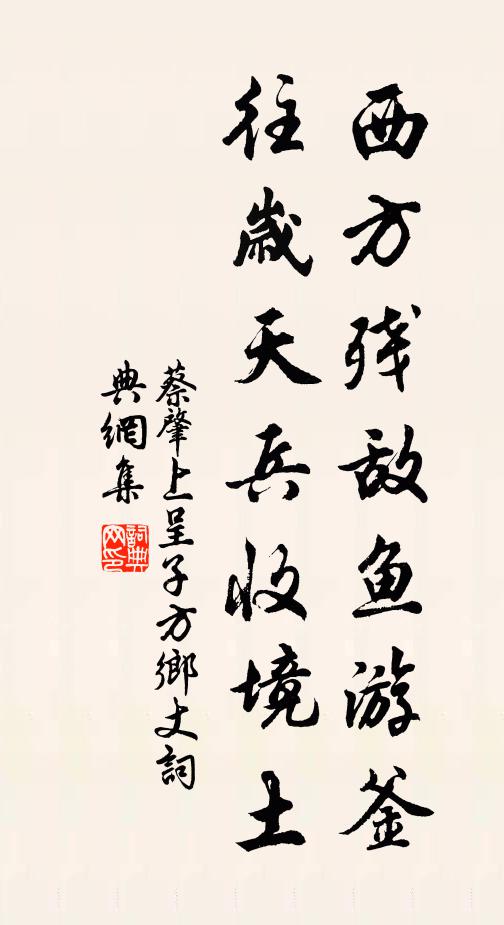 西方残敌鱼游釜
往歲天兵收境土
蔡肇上呈子方鄉丈詞
典網集
詞典网印